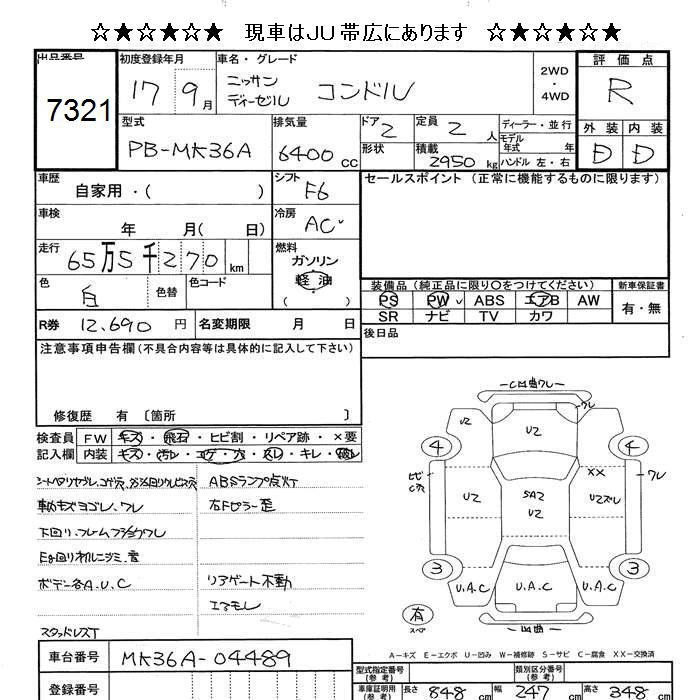 ☆★☆★☆★ 現車はJU帯広にあります ☆★☆★☆★
出品番号 7321
初度登録年月 17 9月
車名・グレード ニッサンディーゼル コンドル
2WD ・ 4WD
評価点 R
外装 内装
D D
型式 PB-MK36A
排気量 6400 cc
ドア 2
形状
定員 2 人
積載 2950 kg
ディーラー・並行
モデル年式 年
ハンドル 左・右
車歴 自家用・( )
シフト F6
セールスポイント (正常に機能するものに限ります)
車検 年 月( 日)
冷房 AC
走行 65万5千270 km
燃料 ガソリン 軽油 ( )
色 白 色替 色コード
装備品 (純正品に限り○をつけてください) 新車保証書
PS PW ABS エアB AW 有・無
SR ナビ TV カワ
R券 12,690 円 名変期限 月 日
後日品
注意事項申告欄(不具合内容等は具体的に記入して下さい)
修復歴 有 〔箇所 〕
検査員記入欄 FW キズ・飛石・ヒビ割・リペア跡・×要
内装 キズ・汚レ・コゲ・穴・スレ・キレ・破レ
ABSランプ点灯
右Fピラー歪
下回り、フレーム
ボデー各A.U.C
リアゲート不動
エアモレ
スタッドレスT
車台番号 MK36A-04489
登録番号
凹曲ワレ
ワレ
UZ
UZ
4
4
ヒビ
XX
ワレ
UZ
SA2
UZ
3
3
U.A.C
U.A.C
U.A.C
有
スペア
A−キズ E−エクボ U−凹み W−補修跡 S−サビ C−腐食 XX−交換済
型式指定番号(参考) 類別区分番号(参考)
車庫証明用(参考) 長さ 848 cm 幅 247 cm 高さ 348 cm